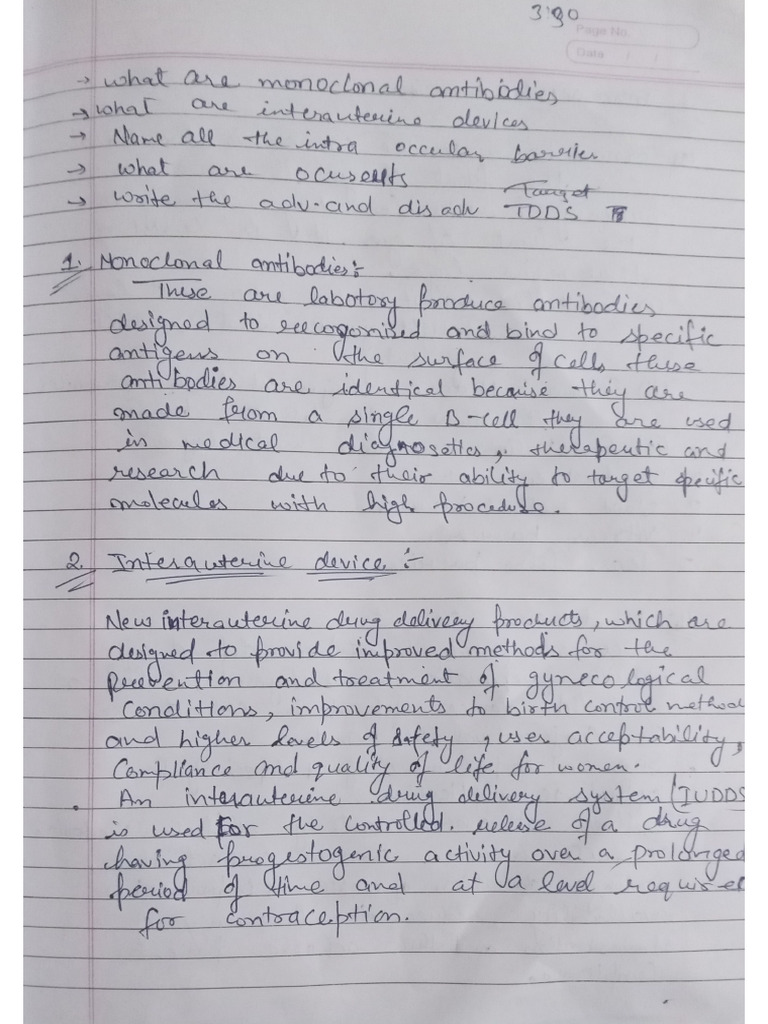 3:30
Page No.
Date
→ what are monoclonal antibiodies
→ what are interauterine devices
→ Name all the intra occular barrier
→ what are ocuserts
→ write the adv. and dis adv Target TDDS
1. Monoclonal antibodies :-
These are labotory produce antibodies
designed to reecogonised and bind to specific
antigens on the surface of cells these
antibodies are identical because they are
made from a single B-cell they are used
in medical diagnosetics, therapeutic and
research due to their ability to target specific
molecules with high procedure.
2. Interauterine device :-
New interauterine drug delivery products, which are
designed to provide improved methods for the
prevention and treatment of gynecological
conditions, improvements to birth control method
and higher levels of safety, user acceptability,
compliance and quality of life for women.
. An interauterine drug delivery system (IUDDS
is used for the controlled. release of a drug
having progestogenic activity over a prolonged
period of time and at a level required
for contraception.